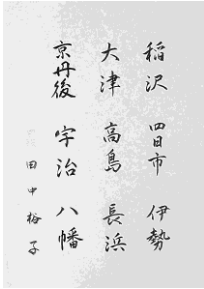 稲沢 四日市 伊勢
大津 高島 長浜
京丹後 宇治 八幡
田中裕子